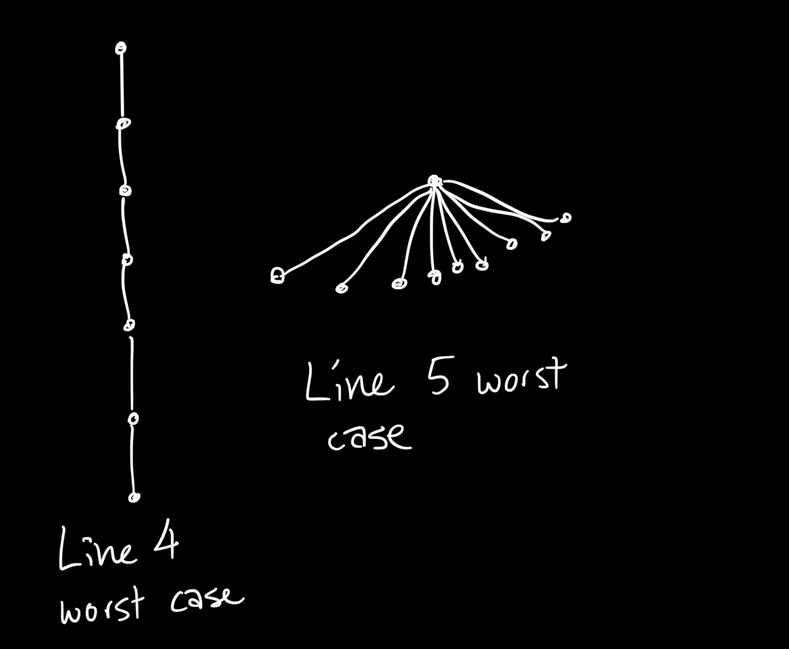 Line 5 worst
case
Line 4
worst case